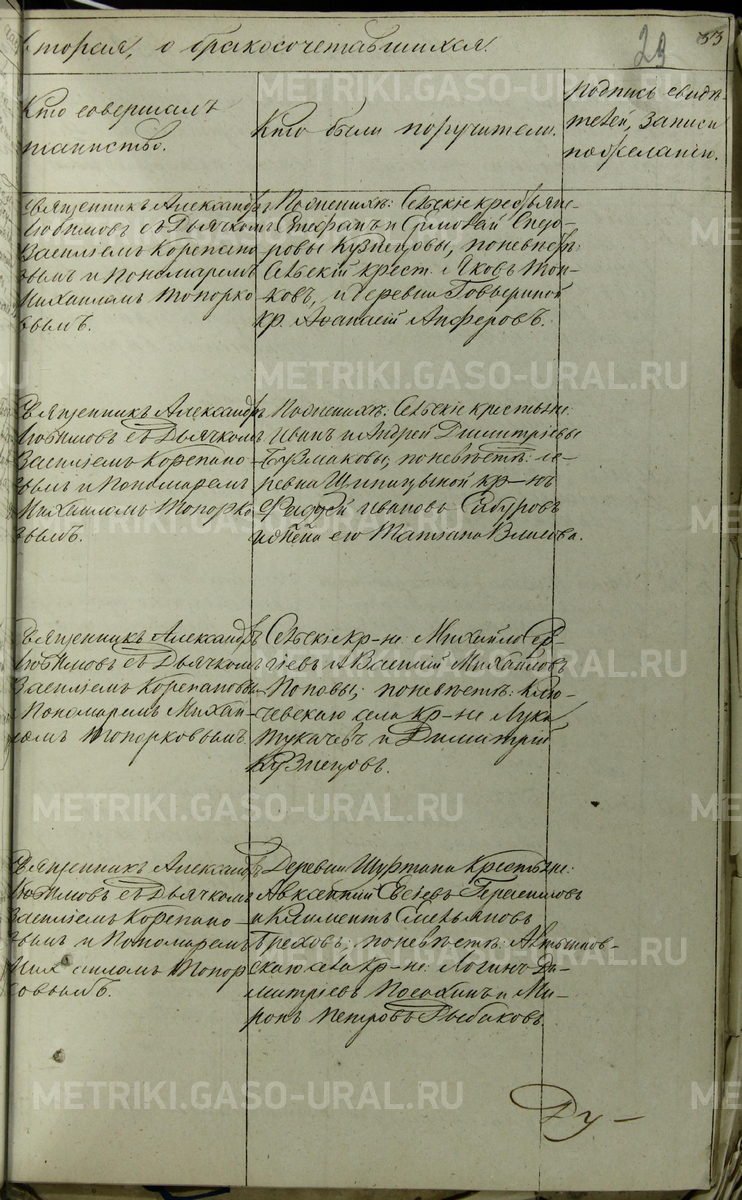 вторая, о бракосочетавшихся.
29
33
Кто совершалъ
таинство.
Кто были поручители.
Подпись свидѣ-
телей, записи
по желанію.
Священникъ Александръ
Любимовъ съ Дьячкомъ
Василіемъ Корепано
вымъ и Пономаремъ
Михаиломъ Топорко
вымъ.
По женихѣ: Сельскіе крестьяне
Стефанъ и Сидо-
ровы Кузнецовы, по невѣстѣ:
Сельскій крест. Яковъ
ковъ, и деревни
кр. Аѳанасій Анферовъ.
Священникъ Александръ
Любимовъ съ Дьячкомъ
Василіемъ Корепано-
вымъ и Пономаремъ
Михаиломъ Топорко
вымъ.
По женихѣ: Сельскіе крестьяне:
Иванъ и Андрей Димитріевы
Бузмаковы, по невѣстѣ: де-
ревни Шипицыной кр-нъ
Фаддей Ивановъ Сабуровъ
и жена его Татіана
Священникъ Александръ
Любимовъ съ Дьячкомъ
Василіемъ Корепановы
и Пономаремъ Миха-
ломъ Топорковымъ
Сельскіе кр-не: Михайло Сер-
гіевъ и Василій Михайловъ
Поповы; по невѣстѣ: Клю-
чевскаго села кр-не Лука
Тукачевъ и Димитрій
Кузнецовъ.
Священникъ Александръ
Любимовъ съ Дьячкомъ
Василіемъ Корепано-
вымъ и Пономаремъ
Михаиломъ Топор
ковымъ.
Деревни Шуртана Крестьяне:
Авксентій
и Климентъ Емельяновъ
Греховъ; по невѣстѣ:
скаго села кр-не: Логинъ Ди-
митріевъ и Ми-
ронъ Петровъ Рыбаковъ.
Ду-
METRIKI.GASO-URAL.RU